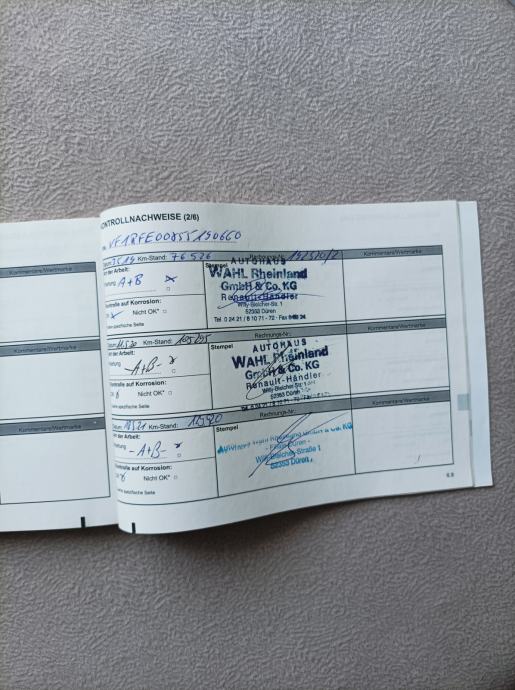 KONTROLLNACHWEISE (2/6)
VF1RFE00855190660
Kommentare/Wertmarke
Datum: 3.5.19 Km-Stand: 76 526 Rechnungs-Nr.: Kommentare/Wertmarke
Art der Arbeit: Stempel
Wartung A+B
AUTOHAUS
WAHL Rheinland
GmbH & Co. KG
Renault-Händler
Willy-Bleicher-Str. 1
52353 Düren
Tel. 0 24 21 / 8 10 71 - 72 · Fax
Kontrolle auf Korrosion:
OK Nicht OK*
*siehe spezifische Seite
Kommentare/Wertmarke
Datum: Km-Stand: Rechnungs-Nr.: Kommentare/Wertmarke
Art der Arbeit: Stempel
Wartung -A+B-
AUTOHAUS
WAHL Rheinland
GmbH & Co. KG
Renault-Händler
Willy-Bleicher-Str.
52353 Düren
Kontrolle auf Korrosion:
OK Nicht OK*
*siehe spezifische Seite
Kommentare/Wertmarke
Datum: Km-Stand: Rechnungs-Nr.: Kommentare/Wertmarke
Art der Arbeit: Stempel
Wartung -A+B-
GmbH & Co. KG
Düren
Willy-Bleicher-Straße 1
52353 Düren
Kontrolle auf Korrosion:
OK Nicht OK*
*siehe spezifische Seite
6.9